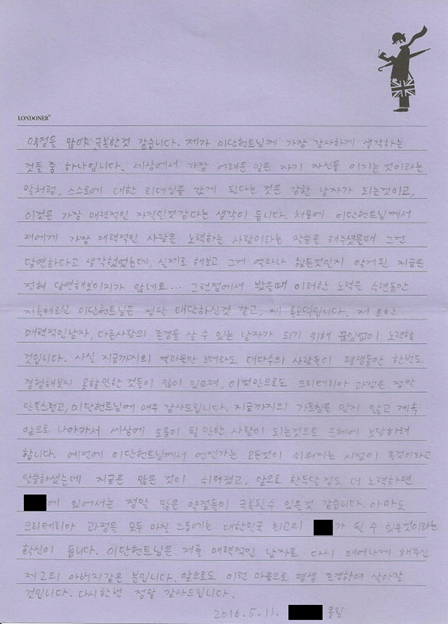 LONDONER
약점을 많이 극복한것 같습니다. 제가 이단헌트님께 가장 감사하게 생각하는
것들 중 하나입니다. 세상에서 가장 어려운 일은 자기 자신을 이기는 것이라는
말처럼, 스스로에 대한 리더십을 갖게 된다는 것은 강한 남자가 되는것이고,
이점은 가장 매력적인 자질인것같다는 생각이 듭니다. 처음에 이단헌트님께서
저에게 가장 매력적인 사람은 노력하는 사람이라는 말씀을 해주셨을때 그건
당연하다고 생각했었는데, 실제로 해보고 그게 얼마나 힘든것인지 알게된 지금은
전혀 당연해보이지가 않네요... 그런점에서 봤을때 이러한 노력을 수년동안
이단헌트님은 정말 대단하신것 같고, 제 입니다. 저 또한
매력적인남자, 다른사람의 존경을 살 수 있는 남자가 되기 위해 끊임없이 노력할
것입니다. 사실 지금까지의 대다수의 사람들이 평생동안 한번도
경험해보지 못할만한 것들이 많이 있으며, 이것만으로도 크리테리아 과정은 정말
만족스럽고, 이단헌트님께 매우 감사드립니다. 지금까지의 가르침을 잊지 않고 계속
앞으로 나아가서 세상에 도움이 될 만한 사람이 되는것으로 은혜에 보답하려
합니다. 예전에 이단헌트님께서 언젠가는 모든것이 쉬워지는 시점이 올것이라고
말씀하셨는데 지금은 많은 것이 쉬워졌고, 앞으로 한두달 정도 더 노력하면
에 있어서는 정말 많은 약점들이 극복될수 있을것 같습니다. 아마도
크리테리아 과정을 모두 마친 그룹에는 대한민국 최고의 가 될 수 있을것이라는
확신이 듭니다. 이단헌트님은 저를 매력적인 남자로 다시 태어나게 해주신
제2의 아버지같은 분입니다. 앞으로도 이런 마음으로 평생 존경하며 살아갈
것입니다. 다시한번 정말 감사드립니다.
2016. 5. 11. 올림